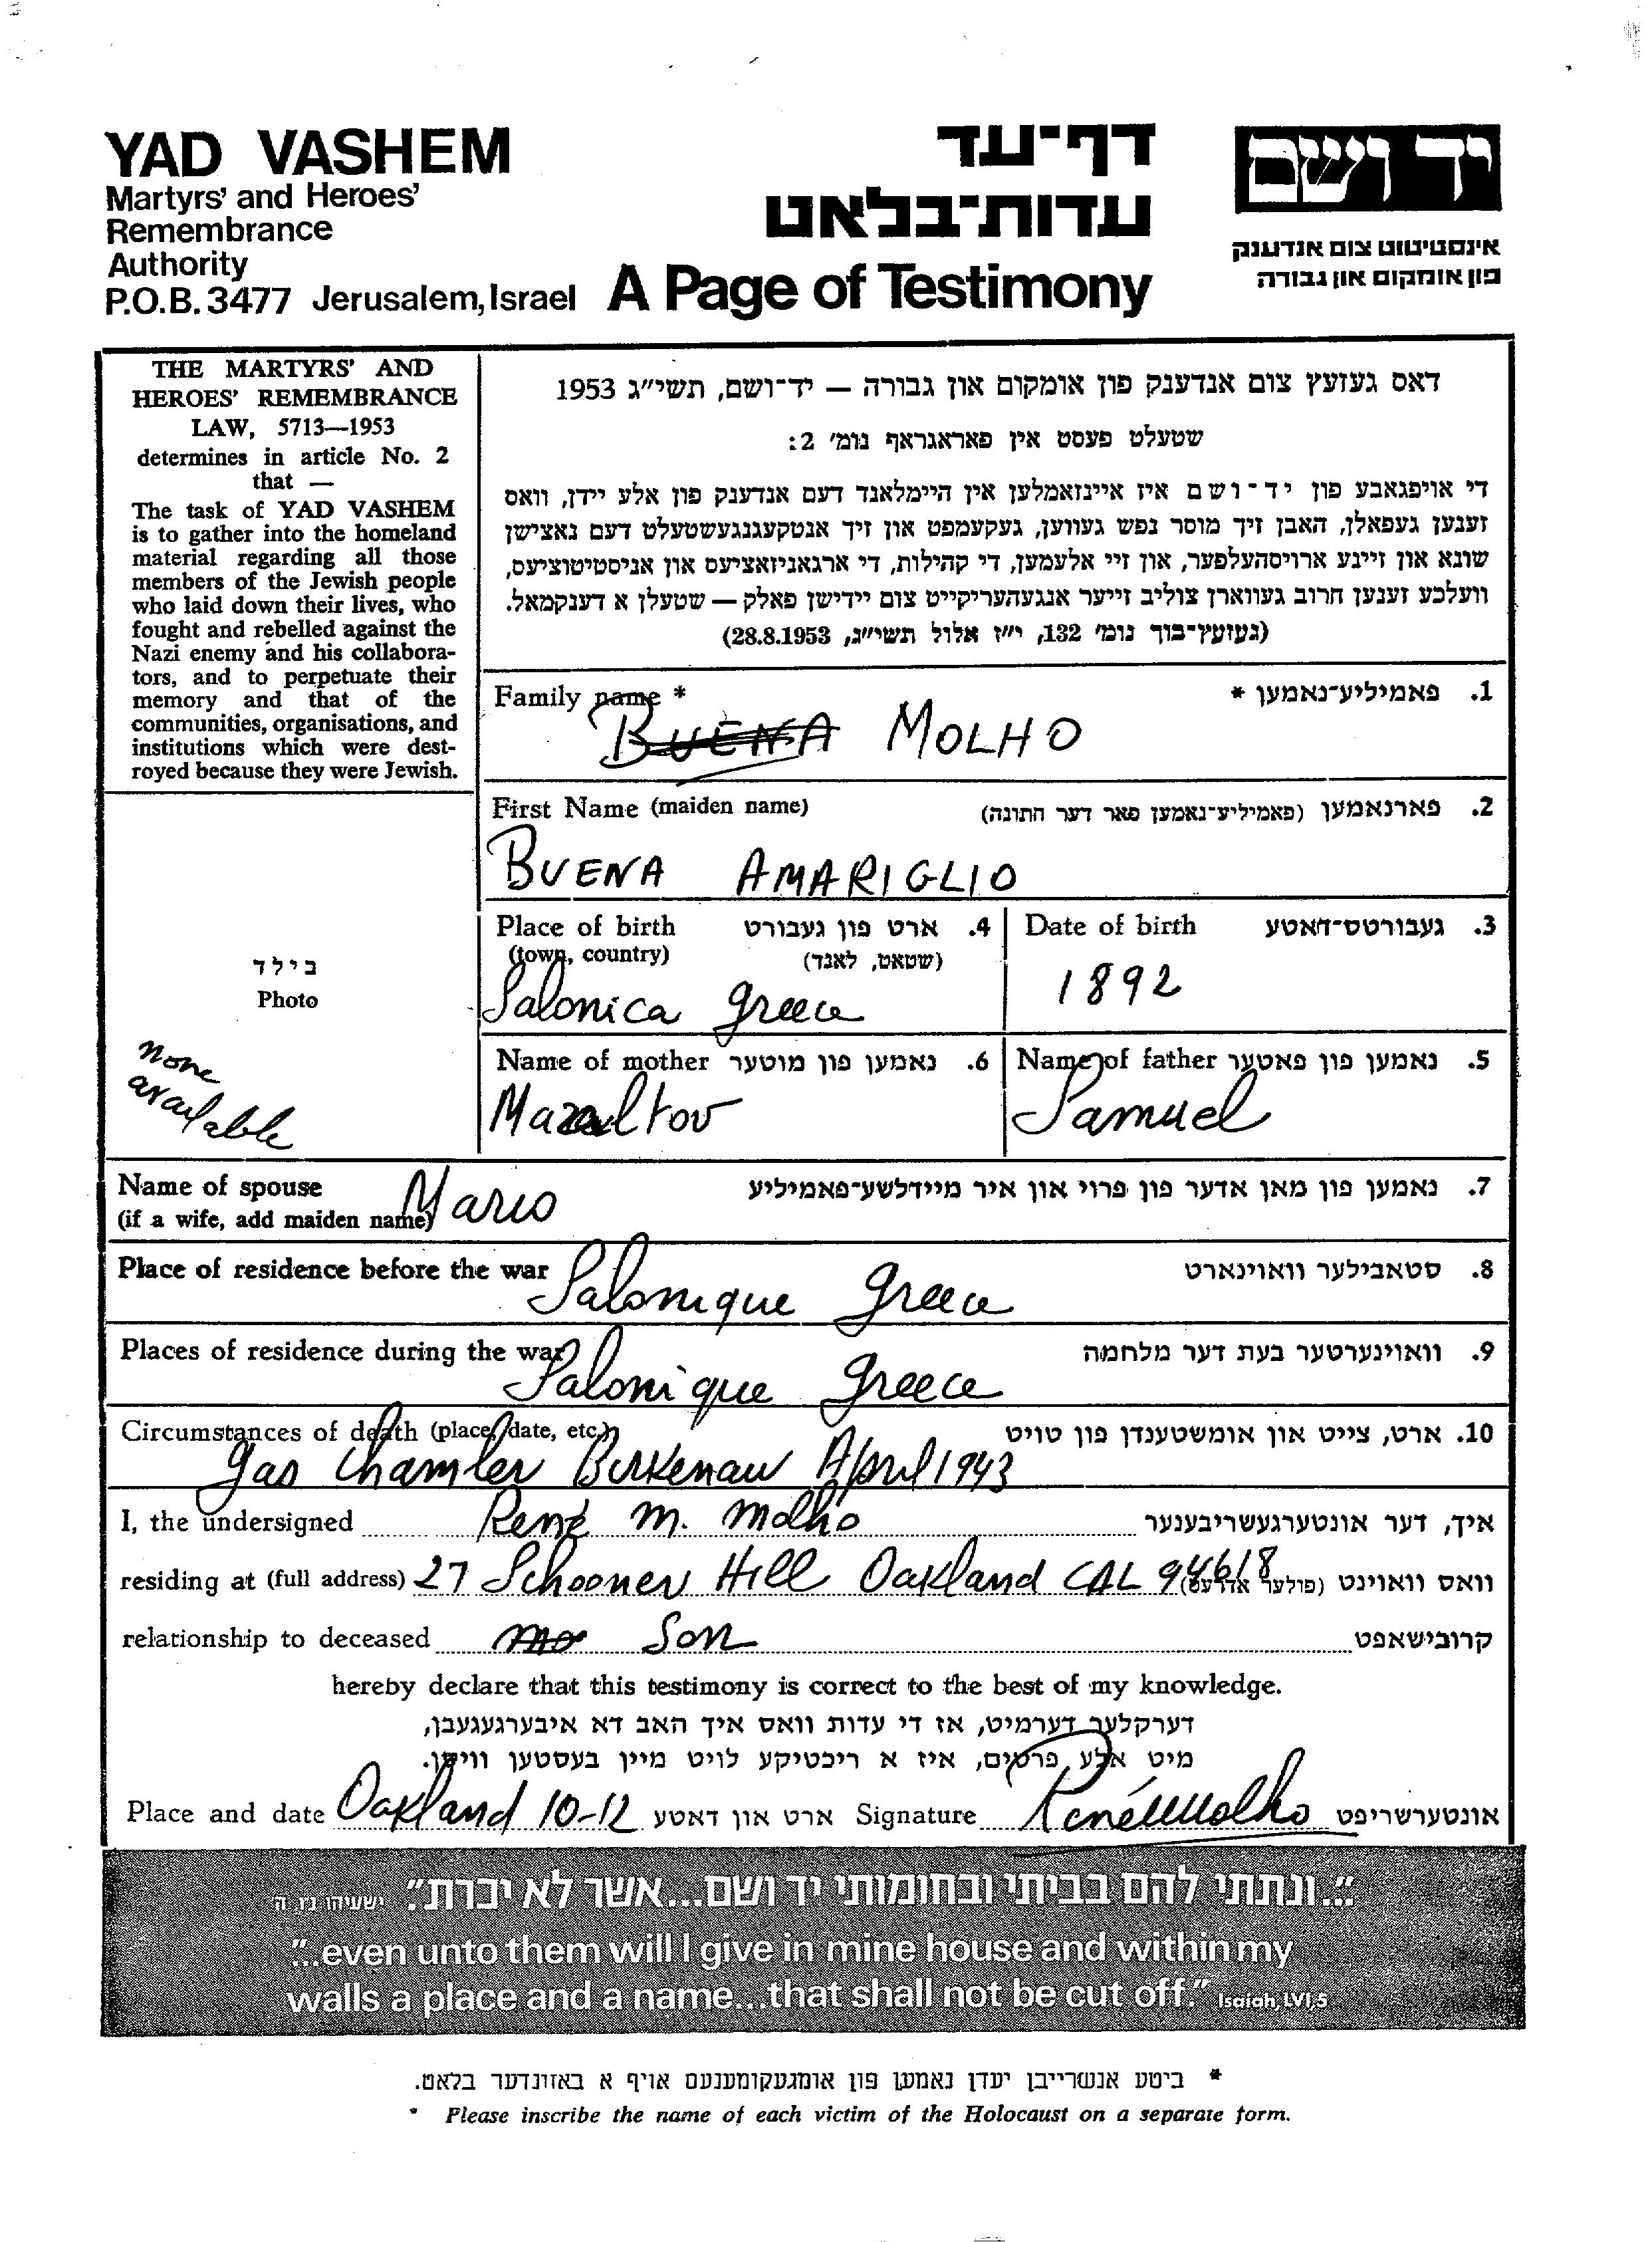 YAD VASHEM
Martyrs' and Heroes'
Remembrance
Authority
P.O.B. 3477 Jerusalem, Israel
דף־עד
עדות־בלאט
A Page of Testimony
יד ושם
אינסטיטוט צום אנדענק
פון אומקום און גבורה
THE MARTYRS' AND
HEROES' REMEMBRANCE
LAW, 5713—1953
determines in article No. 2
that —
The task of YAD VASHEM
is to gather into the homeland
material regarding all those
members of the Jewish people
who laid down their lives, who
fought and rebelled against the
Nazi enemy and his collabora-
tors, and to perpetuate their
memory and that of the
communities, organisations, and
institutions which were dest-
royed because they were Jewish.
דאס געזעץ צום אנדענק פון אומקום און גבורה — יד־ושם, תשי״ג 1953
שטעלט פעסט אין פאראגראף נומ׳ 2:
די אויפגאבע פון יד־ושם איז איינזאמלען אין היימלאנד דעם אנדענק פון אלע יידן, וואס
זענען געפאלן, האבן זיך מוסר נפש געווען, געקעמפט און זיך אנטקעגנגעשטעלט דעם נאצישן
שונא און זיינע ארויסהעלפער, און זיי אלעמען, די קהילות, די ארגאניזאציעס און אניסטיטוציעס,
וועלכע זענען חרוב געווארן צוליב זייער אנגעהעריקייט צום יידישן פאלק — שטעלן א דענקמאל.
(געזעץ־בוך נומ׳ 132, י״ז אלול תשי״ג, 28.8.1953)
Family name * 1. פאמיליע־נאמען *
BUENA MOLHO
First Name (maiden name) 2. פארנאמען (פאמיליע־נאמען פאר דער חתונה)
BUENA AMARIGLIO
Place of birth 4. ארט פון געבורט
(town, country) (שטאט, לאנד)
Salonica Greece
Date of birth 3. געבורטס־דאטע
1892
בילד
Photo
none
available
Name of mother 6. נאמען פון מוטער
Mazaltov
Name of father 5. נאמען פון פאטער
Samuel
Name of spouse 7. נאמען פון מאן אדער פון פרוי און איר מיידלשע־פאמיליע
(if a wife, add maiden name) Mario
Place of residence before the war 8. סטאבילער וואוינארט
Salonique Greece
Places of residence during the war 9. וואוינערטער בעת דער מלחמה
Salonique Greece
Circumstances of death (place, date, etc.) 10. ארט, צייט און אומשטענדן פון טויט
gas chamber Birkenau April 1943
I, the undersigned René M. Molho איך, דער אונטערגעשריבענער
residing at (full address) 27 Schooner Hill Oakland CAL 94618 וואס וואוינט (פולער אדרעס)
relationship to deceased Son קרובישאפט
hereby declare that this testimony is correct to the best of my knowledge.
דערקלער דערמיט, אז די עדות וואס איך האב דא איבערגעגעבן,
מיט אלע פרטים, איז א ריכטיקע לויט מיין בעסטען וויסן.
Place and date Oakland 10-12 ארט און דאטע Signature RenéMMolho אונטערשריפט
"...ונתתי להם בביתי ובחומותי יד ושם...אשר לא יכרת". ישעיהו נו, ה
"...even unto them will I give in mine house and within my
walls a place and a name...that shall not be cut off." Isaiah, LVI,5
* ביטע אנשרייבן יעדן נאמען פון אומגעקומענעם אויף א באזונדער בלאט.
* Please inscribe the name of each victim of the Holocaust on a separate form.